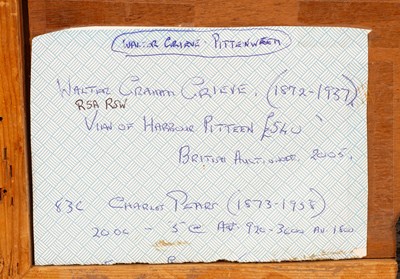 WALTER GRIEVE - PITTENWEEM
WALTER GRAHAM GRIEVE. (1872-1937)
RSA RSW
VIEW OF HARBOUR PITTEEN £540
BRITISH AUCTIONEER 2005.
83C CHARLES PEARS (1873-1958)